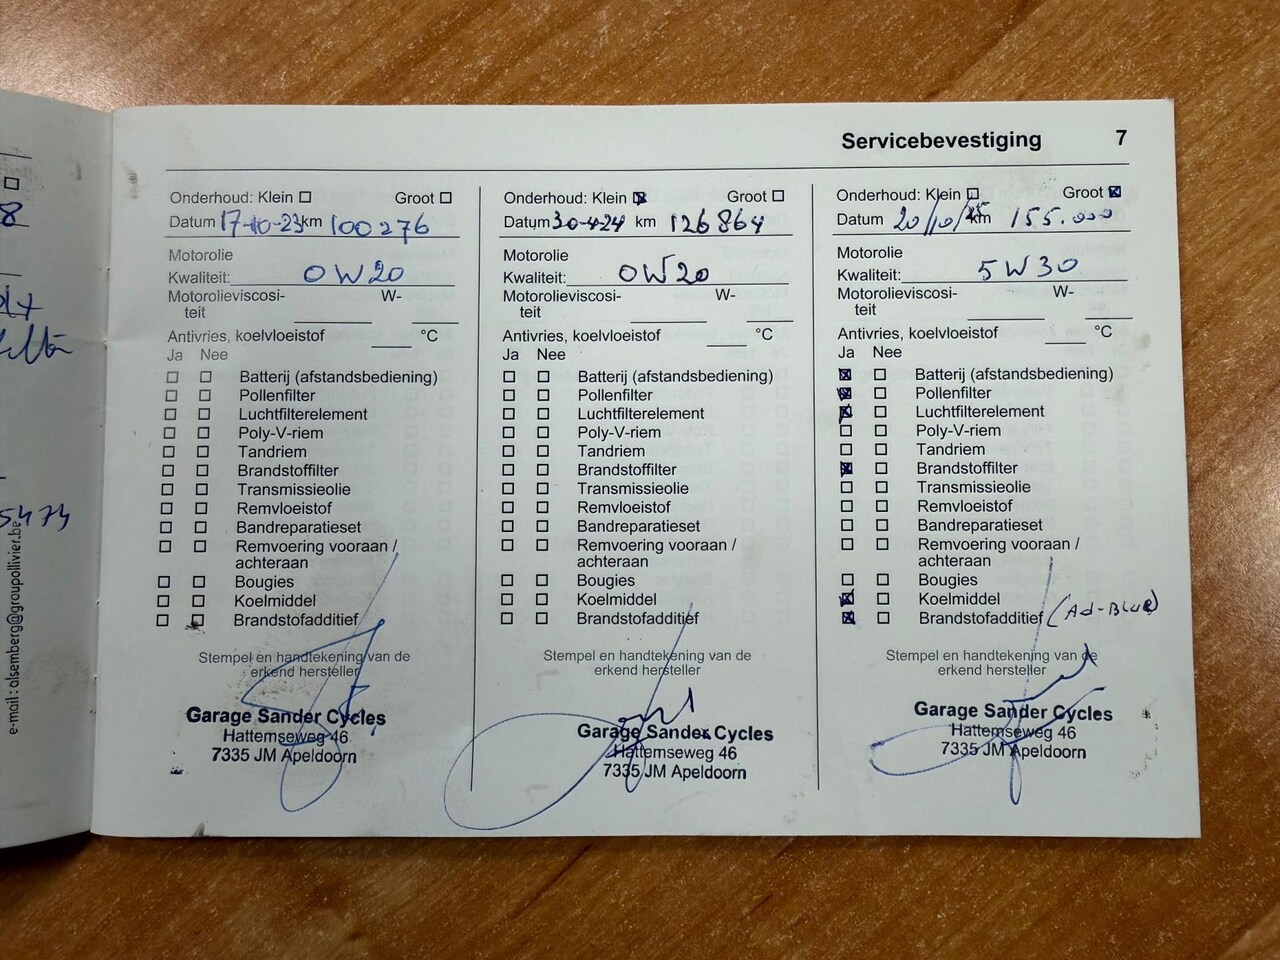 Servicebevestiging 7
8
5474
e-mail : alsemberg@groupollivier.be
Onderhoud: Klein ☐ Groot ☐
Datum 17-10-23 km 100276
Motorolie
Kwaliteit: 0W20
Motorolieviscosi- W-
teit
Antivries, koelvloeistof °C
Ja Nee
☐ ☐ Batterij (afstandsbediening)
☐ ☐ Pollenfilter
☐ ☐ Luchtfilterelement
☐ ☐ Poly-V-riem
☐ ☐ Tandriem
☐ ☐ Brandstoffilter
☐ ☐ Transmissieolie
☐ ☐ Remvloeistof
☐ ☐ Bandreparatieset
☐ ☐ Remvoering vooraan /
achteraan
☐ ☐ Bougies
☐ ☐ Koelmiddel
☐ ☐ Brandstofadditief
Stempel en handtekening van de
erkend hersteller
Garage Sander Cycles
Hattemseweg 46
7335 JM Apeldoorn
Onderhoud: Klein ☒ Groot ☐
Datum 30-4-24 km 126864
Motorolie
Kwaliteit: 0W20
Motorolieviscosi- W-
teit
Antivries, koelvloeistof °C
Ja Nee
☐ ☐ Batterij (afstandsbediening)
☐ ☐ Pollenfilter
☐ ☐ Luchtfilterelement
☐ ☐ Poly-V-riem
☐ ☐ Tandriem
☐ ☐ Brandstoffilter
☐ ☐ Transmissieolie
☐ ☐ Remvloeistof
☐ ☐ Bandreparatieset
☐ ☐ Remvoering vooraan /
achteraan
☐ ☐ Bougies
☐ ☐ Koelmiddel
☐ ☐ Brandstofadditief
Stempel en handtekening van de
erkend hersteller
Garage Sander Cycles
Hattemseweg 46
7335 JM Apeldoorn
Onderhoud: Klein ☐ Groot ☒
Datum 20/10/25 km 155.000
Motorolie
Kwaliteit: 5W30
Motorolieviscosi- W-
teit
Antivries, koelvloeistof °C
Ja Nee
☒ ☐ Batterij (afstandsbediening)
☒ ☐ Pollenfilter
☒ ☐ Luchtfilterelement
☐ ☐ Poly-V-riem
☐ ☐ Tandriem
☒ ☐ Brandstoffilter
☐ ☐ Transmissieolie
☐ ☐ Remvloeistof
☐ ☐ Bandreparatieset
☐ ☐ Remvoering vooraan /
achteraan
☐ ☐ Bougies
☒ ☐ Koelmiddel
☒ ☐ Brandstofadditief (Ad-Blue)
Stempel en handtekening van de
erkend hersteller
Garage Sander Cycles
Hattemseweg 46
7335 JM Apeldoorn